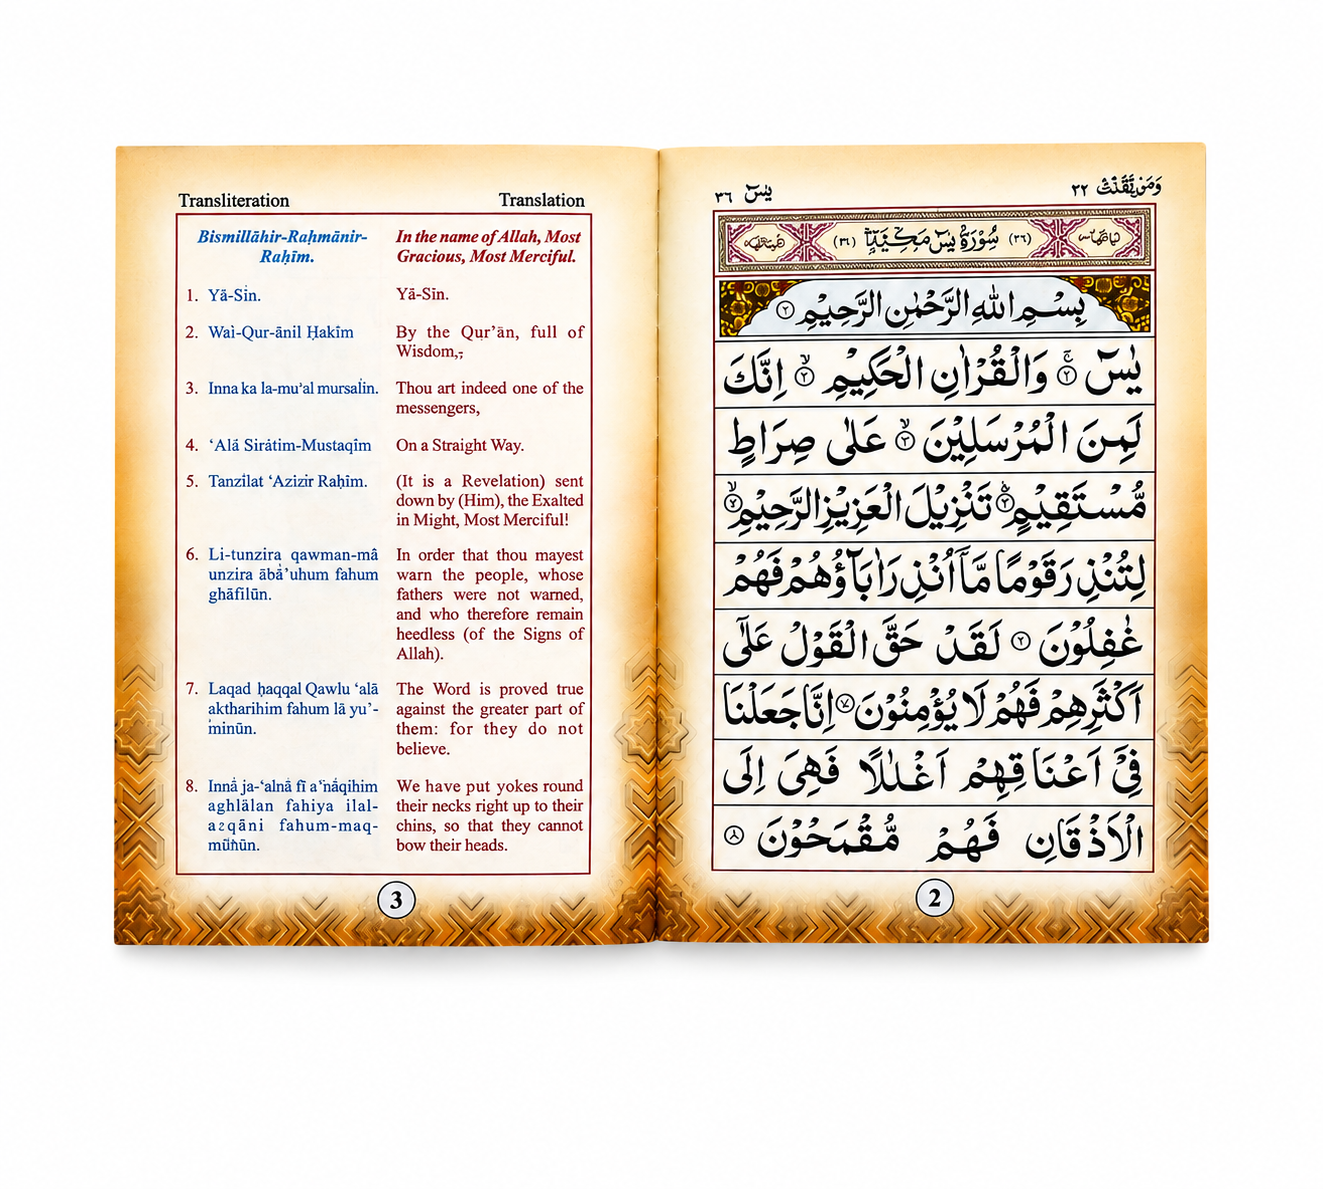 Transliteration
Translation
Bismillāhir-Raḥmānir-
Raḥīm.
In the name of Allah, Most
Gracious, Most Merciful.
1. Yā-Sin.
Yā-Sīn.
2. Wai-Qur-ānil Ḥakīm
By the Qur’ān, full of
Wisdom,
3. Inna ka la-mu’al mursalin.
Thou art indeed one of the
messengers,
4. ‘Alā Sirátim-Mustaqīm
On a Straight Way.
5. Tanzīlat ‘Azizir Raḥīm.
(It is a Revelation) sent
down by (Him), the Exalted
in Might, Most Merciful!
6. Li-tunzira qawman-mâ
unzira ābā’uhum fahum
ghāfilūn.
In order that thou mayest
warn the people, whose
fathers were not warned,
and who therefore remain
heedless (of the Signs of
Allah).
7. Laqad ḥaqqal Qawlu ‘alā
aktharihim fahum lā yu’-
minūn.
The Word is proved true
against the greater part of
them: for they do not
believe.
8. Innā ja-‘alnā fī a‘nāqihim
aghlālan fahiya ilal-
azqāni fahum-maq-
We have put yokes round
their necks right up to their
chins, so that they cannot
bow their heads.
3
يٰسٓ ٣٦
٢٢
سُوْرَةُ يٰسٓ مَكِّيَّةٌ
بِسْمِ اللّٰهِ الرَّحْمٰنِ الرَّحِيْمِ ٢
يٰسٓ ٢ وَالْقُرْاٰنِ الْحَكِيْمِ ٢ اِنَّكَ
لَمِنَ الْمُرْسَلِيْنَ ٣ عَلٰى صِرَاطٍ
مُّسْتَقِيْمٍ ٣ تَنْزِيْلَ الْعَزِيْزِ الرَّحِيْمِ ٧
لِتُنْذِرَ قَوْمًا مَّآ اُنْذِرَ اٰبَآؤُهُمْ فَهُمْ
غٰفِلُوْنَ ٢ لَقَدْ حَقَّ الْقَوْلُ عَلٰٓى
اَكْثَرِهِمْ فَهُمْ لَا يُؤْمِنُوْنَ ٧ اِنَّا جَعَلْنَا
فِيْٓ اَعْنَاقِهِمْ اَغْلٰلًا فَهِىَ اِلَى
الْاَذْقَانِ فَهُمْ مُّقْمَحُوْنَ ٨
2